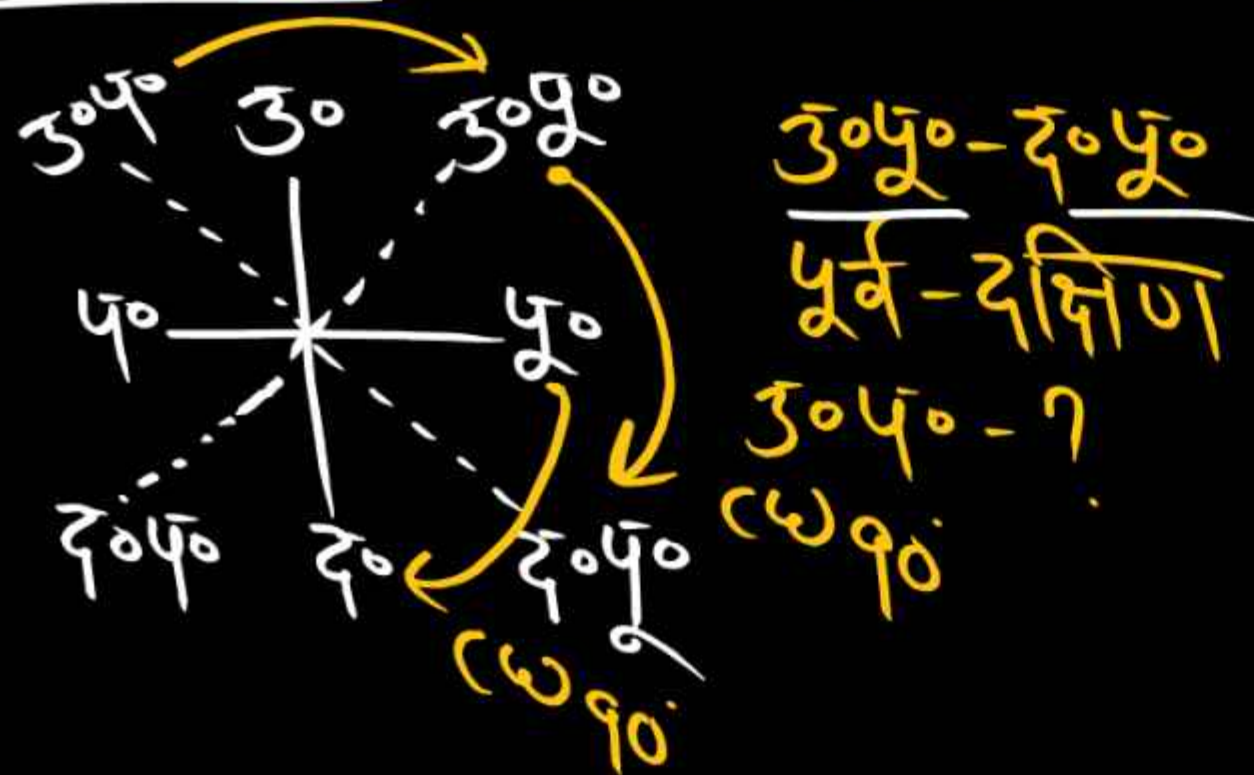 उ०प० उ० उ०पू०
प० पू०
द०प० द० द०पू०
CW 90°
उ०पू० - द०पू०
पूर्व - दक्षिण
उ०प० - ?
CW 90°